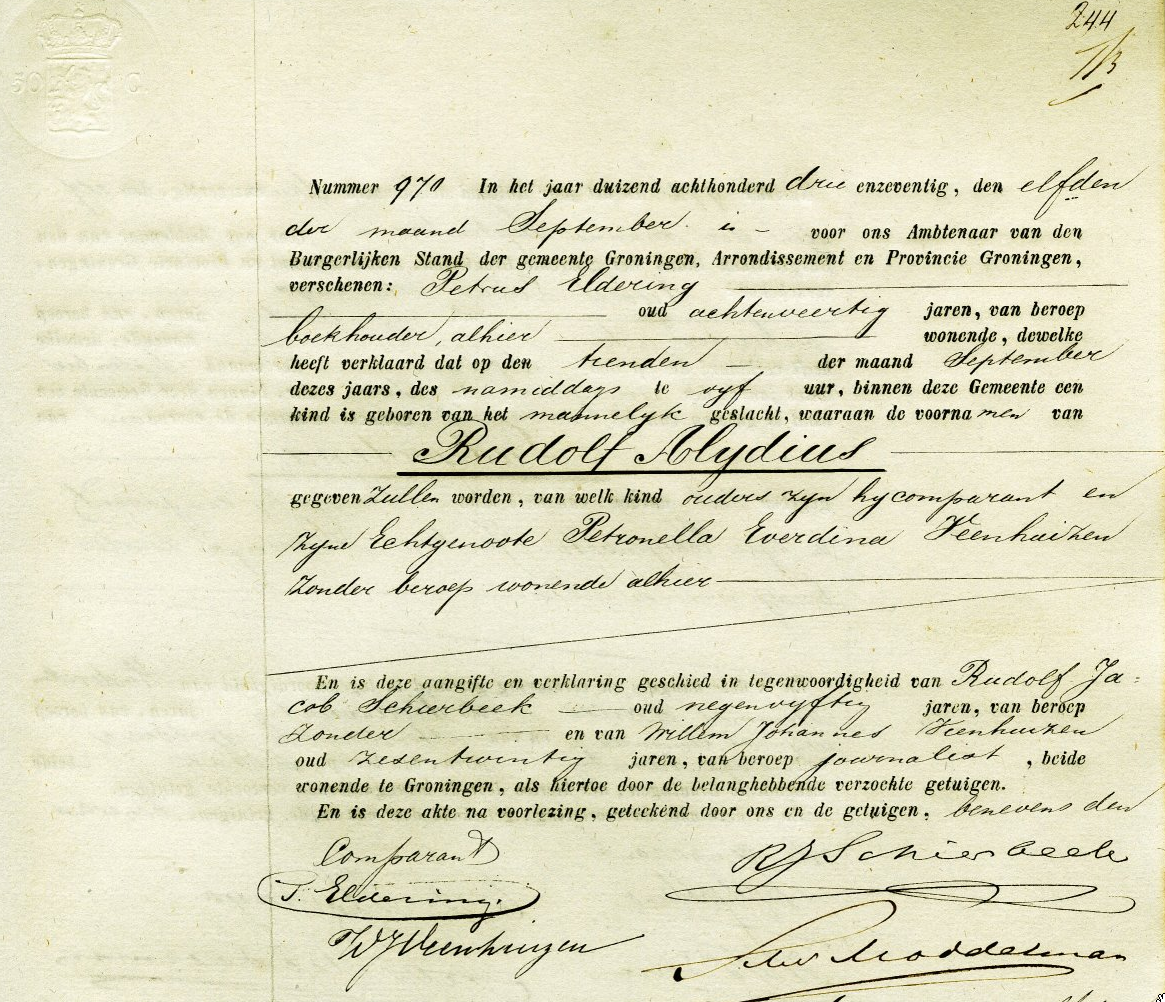 244
50 C.
Nummer 970 In het jaar duizend achthonderd drie enzeventig, den elfden
der maand September is voor ons Ambtenaar van den
Burgerlijken Stand der gemeente Groningen, Arrondissement en Provincie Groningen,
verschenen: Petrus Eldering
oud achtenveertig jaren, van beroep
boekhouder, alhier wonende, dewelke
heeft verklaard dat op den tienden der maand September
dezes jaars, des namiddags te vyf uur, binnen deze Gemeente een
kind is geboren van het mannelyk geslacht, waaraan de voornamen van
Rudolf Alydius
gegeven Zullen worden, van welk kind ouders zyn hy comparant en
zyne Echtgenoote Petronella Everdina Veenhuizen
Zonder beroep wonende alhier
En is deze aangifte en verklaring geschied in tegenwoordigheid van Rudolf Ja-
cob Schierbeek oud negenvyftig jaren, van beroep
Zonder en van Willem Johannes Veenhuizen
oud zesentwintig jaren, van beroep journalist, beide
wonende te Groningen, als hiertoe door de belanghebbende verzochte getuigen.
En is deze akte na voorlezing, geteekend door ons en de getuigen, benevens den
Comparant
RJSchierbeek
P. Eldering.
WJVeenhuizen